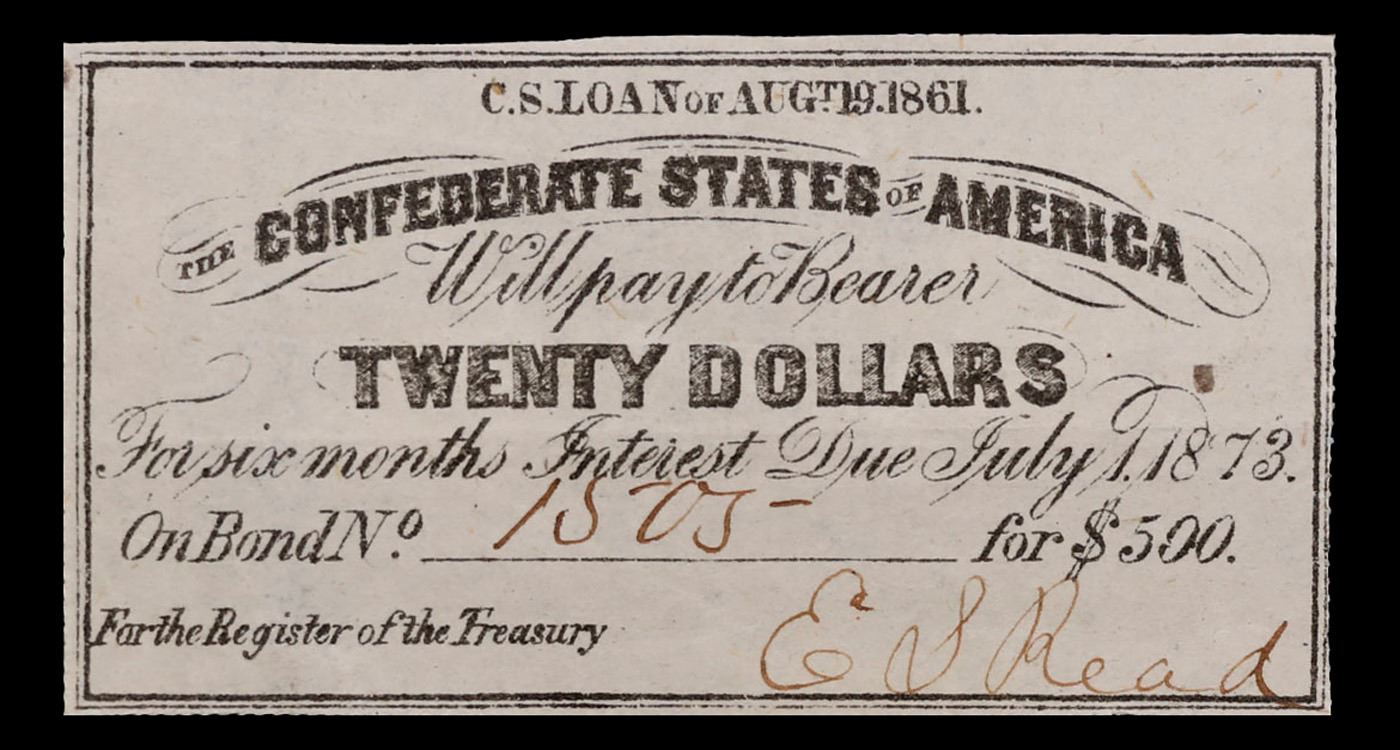 C.S. LOAN OF AUGT 19. 1861.
THE CONFEDERATE STATES OF AMERICA
Will pay to Bearer
TWENTY DOLLARS
For six months Interest Due July 1, 1873.
On Bond No. 1505 for $500.
For the Register of the Treasury
E S Read